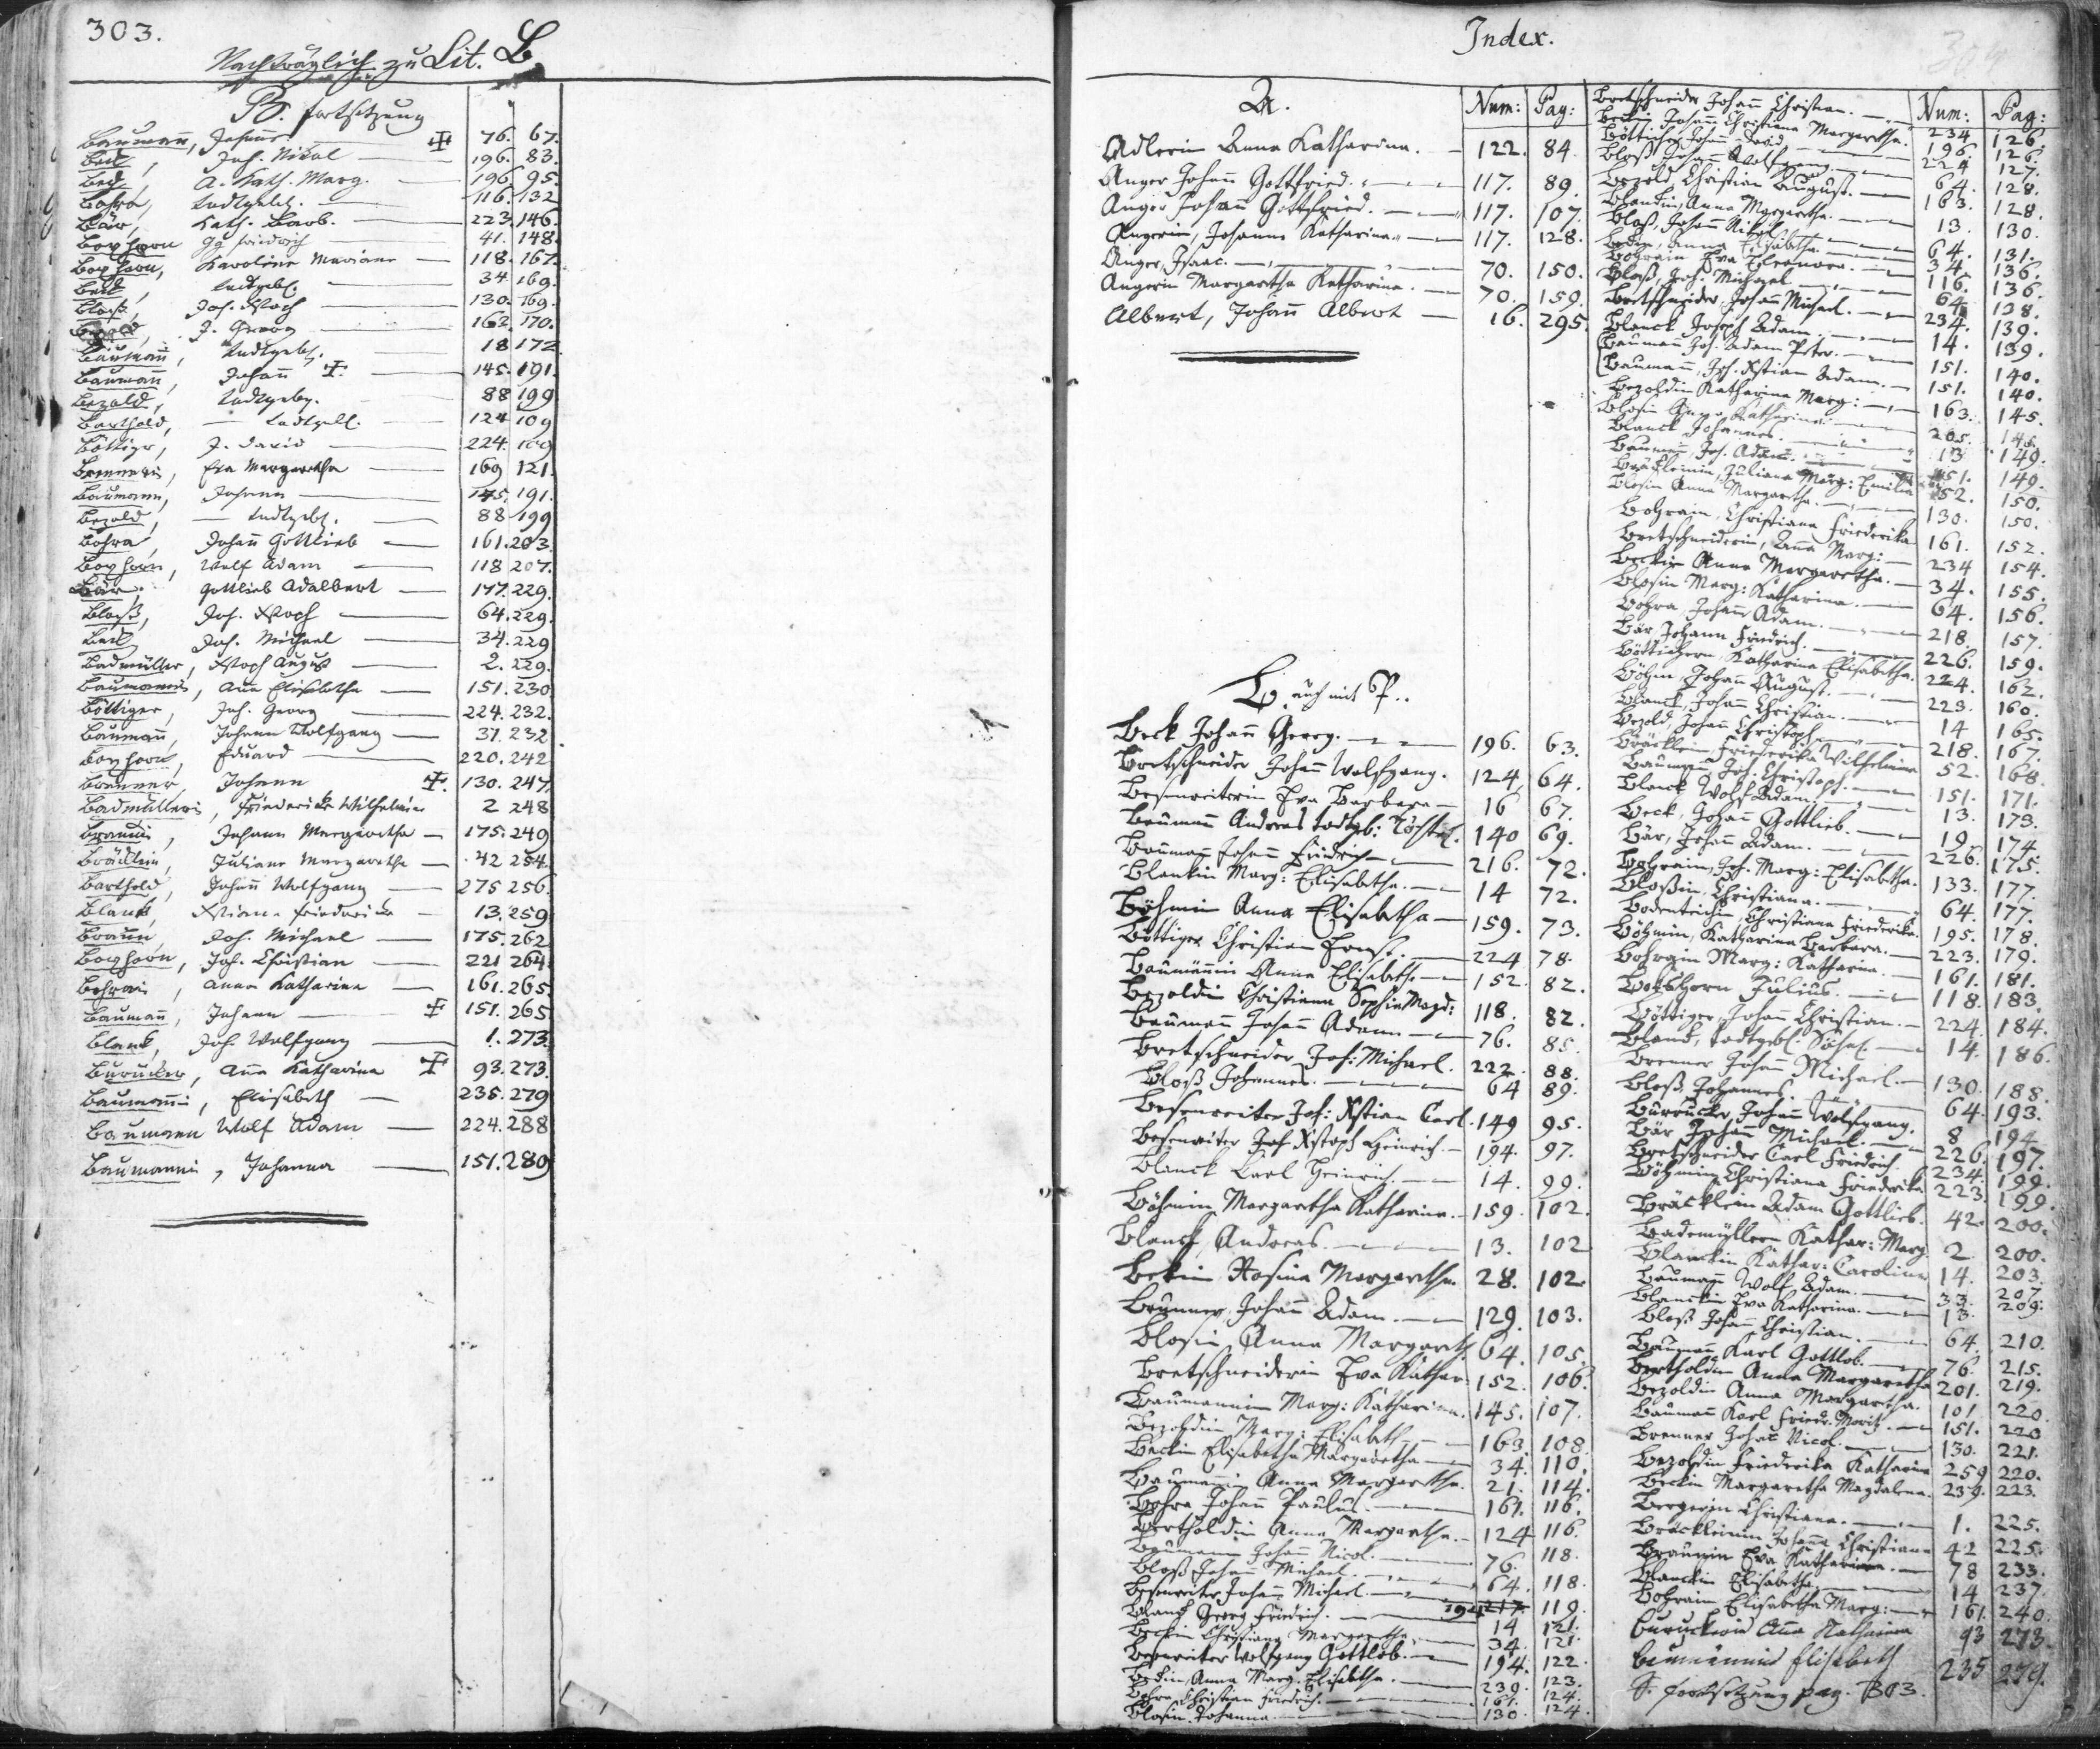 303.
Nachträglich zu Lit. B.
B. fortsetzung
Baumann, Johannes ✠ 76. 67.
Beck, Joh. Nikol — 196. 83.
Beck, A. Kath. Marg. — 196 95.
Bohra, todtgebl. — 116. 132
Bär, Kath. Barb. — 223. 146.
Boxhorn Gg Friedrich — 41. 148.
Boxhorn, Karoline Mariane — 118. 167.
Beck, todtgebl. — 34. 169.
Bloß, Joh. Xstoph — 130. 169.
J. Georg — 162. 170.
Baumann, todtgebl. — 18 172
Baumann, Johann ✠ — 145. 191.
Bezold, todtgeb. — 88 199
Barthold, — todtgebl. — 124 109
Böttiger, J. David — 224. 109
Eva Margaretha — 169 121.
Baumann, Johann — 145. 191.
Bezold, — todtgebl. — 88 199
Bohra, Johann Gottlieb — 161. 203.
Boxhorn, Wolf Adam — 118 207.
Bär, Gottlieb Adalbert — 177. 229.
Bloß, Joh. Xstoph — 64. 229.
Beck, Joh. Michael — 34. 229
Badmüller, Xstoph August — 2. 229.
Baumannin, Anna Elisabetha — 151. 230
Böttiger, Joh. Georg — 224. 232.
Baumann, Johann Wolfgang — 37. 232
Boxhorn, Eduard — 220. 242
Brenner, Johann ✠. 130. 247.
Badmüllerin, Friedericke Wilhelmin 2 248
Braunin, Johann Margaretha — 175. 249
Bräcklein, Juliane Margaretha — 42 254.
Barthold, Johann Wolfgang — 275 256.
Blank, Xstian. Friederika — 13. 259
Braun, Joh. Michael — 175. 262
Boxhorn, Joh. Christian — 221 264.
Bohrain, Anna Katharina — 161. 265.
Baumann, Johann — ✠ 151. 265
Blank, Joh. Wolfgang — 1. 273.
Burucker, Anna Katharina ✠ 93. 273.
Baumannin, Elisabeth — 235. 279
Baumann Wolf Adam — 224. 288
Baumannin, Johanna — 151. 289
Index.
A. Num: Pag:
Adlerin Anna Katharina. — 122. 84.
Anger Johann Gottfried. — 117. 89.
Anger Johann Gottfried. — 117. 107.
Angerin, Johanna Katharina. — 117. 128.
Anger, Isaac. — 70. 150.
Angerin Margaretha Katharina. — 70. 159.
Albert, Johann Albert — 16. 295.
B. auch mit P..
Beck Johann Georg. — 196. 63.
Bretschneider Johann Wolfgang. 124. 64.
Besenreiterin Eva Barbara — 16 67.
Baumann Andreas todtgeb: Töchterl. 140 69.
Baumann Johann Friedrich — 216. 72.
Blankin Marg: Elisabetha. — 14 72.
Böhmin Anna Elisabetha — 159. 73.
Böttiger Christian Ernst. — 224 78.
Baumännin Anna Elisabeth — 152 82.
Bezoldin Christiana Sophia Magd: 118. 82.
Baumann Johann Adam — 76. 85.
Bretschneider Joh: Michael. 222. 88.
Bloß Johannes. — 64 89.
Besenreiter Joh: Xstian Carl. 149 95.
Besenreiter Joh Xstoph Heinrich. — 194. 97.
Blanck Carl Heinrich. — 14. 99.
Böhmin Margaretha Katharina. — 159. 102.
Blanck, Andreas. — 13. 102
Bekin Rosina Margaretha. 28. 102.
Brunner Johann Adam. — 129. 103.
Blosin Anna Margareth. 64. 105.
Bretschneiderin Eva Kathar: 152. 106.
Baumannin Marg: Katharina. 145. 107.
Bezoldin Marg: Elisabeth — 163. 108.
Beckin Elisabetha Margaretha — 34. 110.
Baumannin Anna Margaretha. 21. 114.
Bohra Johann Paulus. — 161. 116.
Bertholdin Anna Margaretha. — 124 116.
Baumann Johann Nicol. — 76. 118.
Bloß Johann Michael. — 64. 118.
Besenreiter Johann Michael — 194 217. 119.
Blanck Georg Friedrich. — 14 121.
Beckin Christiana Margaretha. — 34. 121.
Besenreiter Wolfgang Gottlob. — 194. 122.
Beckin, Anna Marg. Elisabetha. — 239. 123.
Bohra, Christian Friedrich. — 161. 124.
Blosin Johanna — 130 124.
Num: Pag:
Bretschneider Johann Christian. — 234 126.
Beckin, Johanna Christiana Margaretha. 196 126.
Böttiger, Johann David — 224 127.
Bloß Johann Wolfgang. — 64. 128.
Bezold Christian August. — 163. 128.
Blankin, Anna Margaretha. — 13. 130.
Bloß, Johann Nikol — 64. 131.
Beckin, Anna Elisabetha. — 34. 136.
Bohrain Eva Eleonora. — 116. 136.
Bloß, Joh. Michael — 64 128.
Bretschneider, Johann Michael. — 234. 139.
Blanck Joseph Adam. — 14. 139.
Baumann Joh. Adam Peter. — 151. 140.
Baumann, Joh. Xstian Adam. — 151. 140.
Bezoldin Katharina Marg: — 163. 145.
Blosin Katharina — 205. 145.
Blanck Johannes. — 13 149.
Baumann, Joh. Adam. — 151. 149.
Bräckleinin, Juliana Marg: Emilia 52. 150.
Blosin Anna Margaretha. — 130. 150.
Bohrain, Christiana Friederika 161. 152.
Bretschneiderin, Anna Marg: — 234 154.
Beckin Anna Margaretha. — 34. 155.
Blosin Marg: Katharina. — 64. 156.
Bohra, Johann Adam. — 218. 157.
Bär Johann Friedrich. — 226. 159.
Böttichern, Katharina Elisabetha. 224. 162.
Böhm Johann August. — 223. 160.
Blanck, Johann Christian. — 14 165.
Bezold Johann Christoph. — 218. 167.
Bräcklein Friederika Wilhelmina 52. 168.
Baumann Joh. Christoph. — 151. 171.
Blanck Wolf Adam. — 13. 173.
Beck, Johann Gottlieb. — 19. 174
Bär, Johann Adam. — 226. 175.
Bohrain, Joh. Marg: Elisabetha. 133. 177.
Bloßin, Christiana. — 64. 177.
Bodenteichin Christiana Friederika. 195. 178.
Böhmin, Katharina Barbara. — 223. 179.
Bohrain Marg: Katharina. — 161. 181.
Bokshorn Julius. — 118. 183.
Böttiger, Johann Christian. — 224. 184.
Blanck, todtgebl: Söhnl. — 14. 186.
Brenner Johann Michael. — 130. 188.
Bloß Johannes — 64. 193.
Burrucker, Johann Wolfgang. 8 194
Bär Johann Michael. — 226. 197.
Bretschneider Carl Friedrich. — 234. 199.
Böhmin Christiana Friederika 223. 199.
Bräcklein Adam Gottlieb. 42. 200.
Bademüllern Kathar: Marg. 2. 200.
Blanckin Kathar: Carolina 14. 203.
Baumann Wolf Adam. — 33. 207.
Blanckin Eva Katharina. — 13. 209.
Bloß Johann Christian. — 64. 210.
Baumann Karl Gottlob. — 76 215.
Bertholdin Anna Margaretha 201. 219.
Bezoldin Anna Margaretha. 101 220.
Baumann Karl Friedr. Moritz. — 151. 220
Brenner Johann Nicol. — 130. 221.
Bezoldin Friederika Katharina 259 220.
Beckin Margaretha Magdalena. 239. 223.
Bergerin Christiana. — 1. 225.
Bräckleinin Johanna Christiana 42 225.
Braunin Eva Katharina. — 78 233.
Blanckin Elisabetha. — 14 237.
Bohrain Elisabetha Marg: — 161. 240.
Buruckerin Anna Katharina 93 273.
Baumännin Elisabeth 235 279.
S. fortsetzung pag. 303.